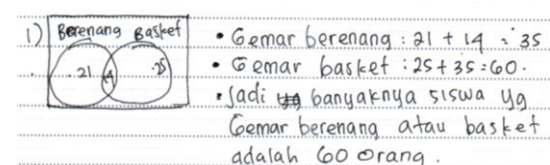 1) Berenang Basket
21 14 25
• Gemar berenang : 21 + 14 = 35
• Gemar basket : 25 + 35 = 60.
• Jadi banyaknya siswa yg
Gemar berenang atau basket
adalah 60 orang.